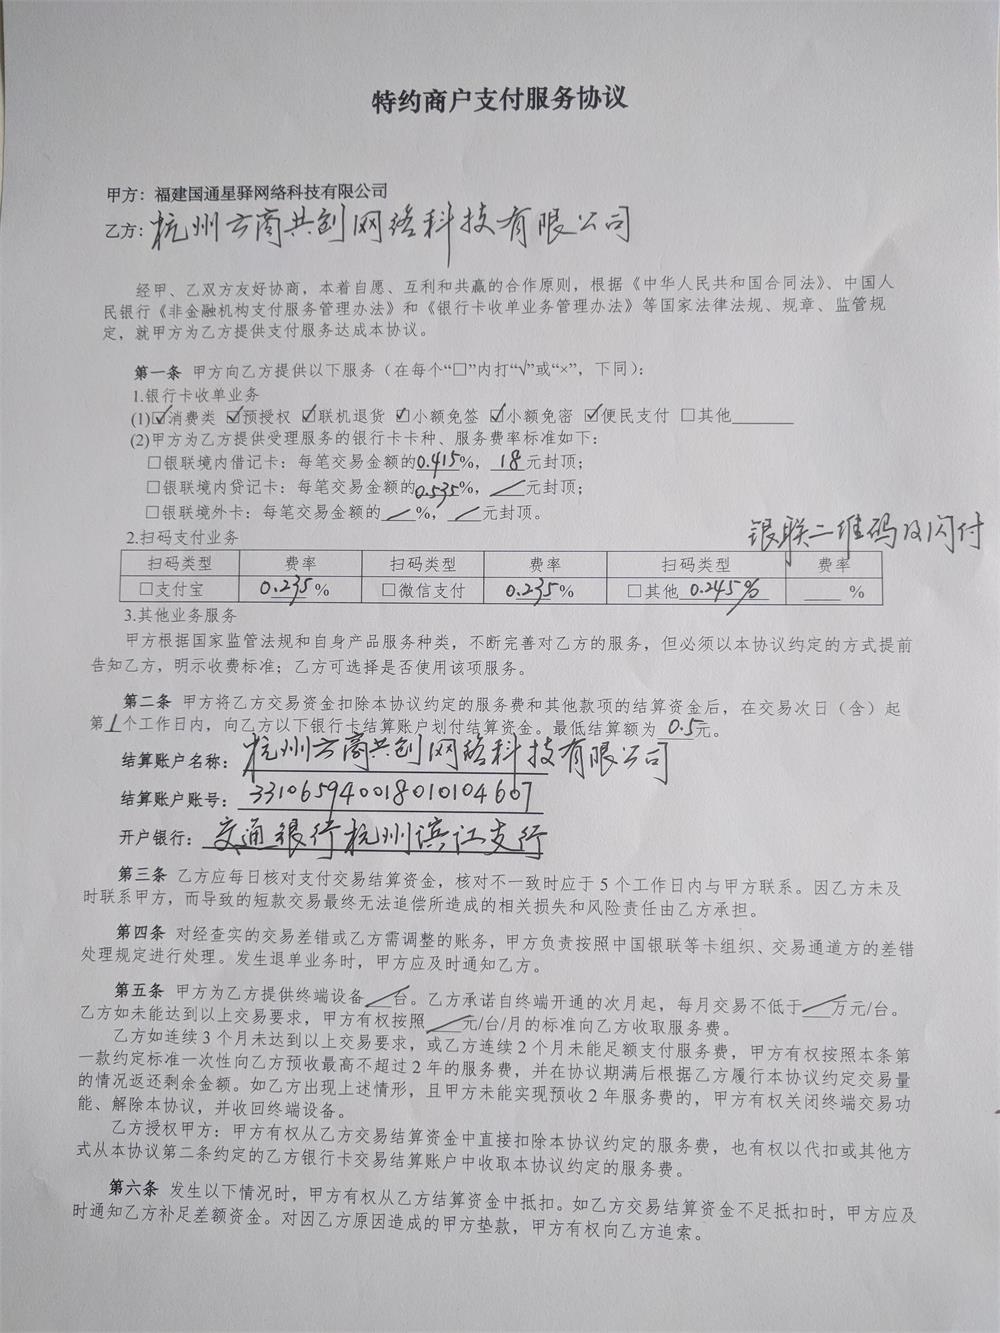 特约商户支付服务协议
甲方：福建国通星驿网络科技有限公司
乙方：杭州云商共创网络科技有限公司
经甲、乙双方友好协商，本着自愿、互利和共赢的合作原则，根据《中华人民共和国合同法》、中国人
民银行《非金融机构支付服务管理办法》和《银行卡收单业务管理办法》等国家法律法规、规章、监管规
定，就甲方为乙方提供支付服务达成本协议。
第一条 甲方向乙方提供以下服务（在每个“□”内打“√”或“×”，下同）：
1.银行卡收单业务
(1)☑消费类 ☑预授权 ☑联机退货 ☑小额免签 ☑小额免密 ☑便民支付 □其他
(2)甲方为乙方提供受理服务的银行卡卡种、服务费率标准如下：
□银联境内借记卡：每笔交易金额的0.415%，18元封顶；
□银联境内贷记卡：每笔交易金额的0.535%，／元封顶；
□银联境外卡：每笔交易金额的／%，／元封顶。
银联二维码及闪付
2.扫码支付业务
扫码类型 费率 扫码类型 费率 扫码类型 费率
□支付宝 0.235% □微信支付 0.235% □其他 0.245% %
3.其他业务服务
甲方根据国家监管法规和自身产品服务种类，不断完善对乙方的服务，但必须以本协议约定的方式提前
告知乙方，明示收费标准；乙方可选择是否使用该项服务。
第二条 甲方将乙方交易资金扣除本协议约定的服务费和其他款项的结算资金后，在交易次日（含）起
第1个工作日内，向乙方以下银行卡结算账户划付结算资金。最低结算额为0.5元。
结算账户名称：杭州云商共创网络科技有限公司
结算账户账号：331065940018010104607
开户银行：交通银行杭州滨江支行
第三条 乙方应每日核对支付交易结算资金，核对不一致时应于 5 个工作日内与甲方联系。因乙方未及
时联系甲方，而导致的短款交易最终无法追偿所造成的相关损失和风险责任由乙方承担。
第四条 对经查实的交易差错或乙方需调整的账务，甲方负责按照中国银联等卡组织、交易通道方的差错
处理规定进行处理。发生退单业务时，甲方应及时通知乙方。
第五条 甲方为乙方提供终端设备／台。乙方承诺自终端开通的次月起，每月交易不低于／万元/台。
乙方如未能达到以上交易要求，甲方有权按照／元/台/月的标准向乙方收取服务费。
乙方如连续 3 个月未达到以上交易要求，或乙方连续 2 个月未能足额支付服务费，甲方有权按照本条第
一款约定标准一次性向乙方预收最高不超过 2 年的服务费，并在协议期满后根据乙方履行本协议约定交易量
的情况返还剩余金额。如乙方出现上述情形，且甲方未能实现预收 2 年服务费的，甲方有权关闭终端交易功
能、解除本协议，并收回终端设备。
乙方授权甲方：甲方有权从乙方交易结算资金中直接扣除本协议约定的服务费，也有权以代扣或其他方
式从本协议第二条约定的乙方银行卡交易结算账户中收取本协议约定的服务费。
第六条 发生以下情况时，甲方有权从乙方结算资金中抵扣。如乙方交易结算资金不足抵扣时，甲方应及
时通知乙方补足差额资金。对因乙方原因造成的甲方垫款，甲方有权向乙方追索。